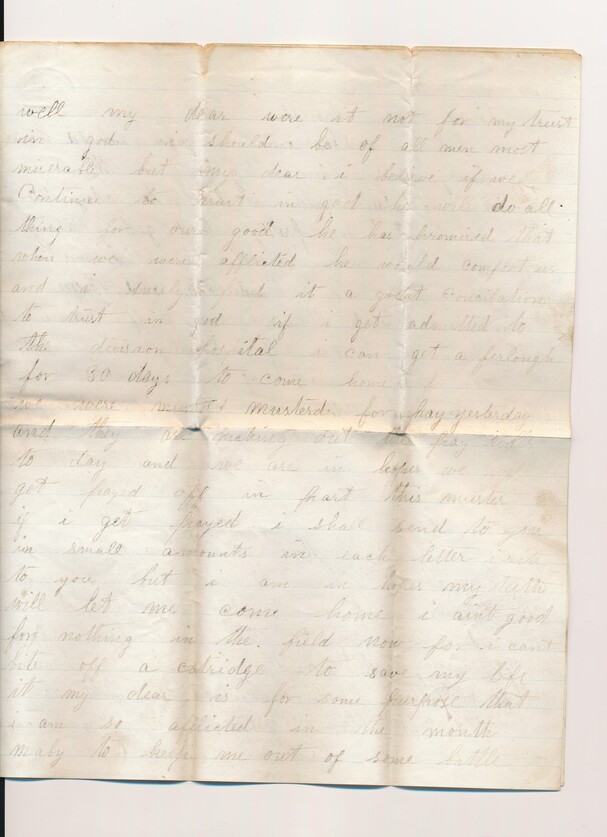 well my dear were it not for my trust
in god i should be of all men most
miserable but my dear i believe if we
Continue to trust in god he will do all
thing for our good he has bromised that
when we were afflicted he would comfort us
and i surely find it a great concilation
to trust in god if i get admitted to
the division hospital i can get a ferlough
for 30 days to come home
we were musterd for pay yesterday
and they are making out the pay rolls
to day and we are in hopes we
get payed off in part this muster
if i get payed i shall send to you
in small amounts in each letter i rite
to you but i am in hopes my teeth
will let me come home i aint good
for nothing in the field now for i cant
bite off a catridge to save my life
it my dear is for some purpose that
i am so afflicted in the mouth
maby to keep me out of some battle